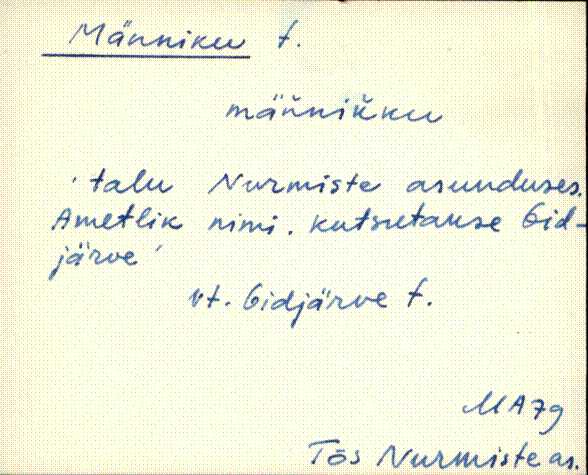 Männiku t.
männikku
'talu Nurmiste asunduses.
Ametlik nimi. kutsutakse Gid-
järve'
vt. Gidjärve t.
MA79
Tõs Nurmiste as.